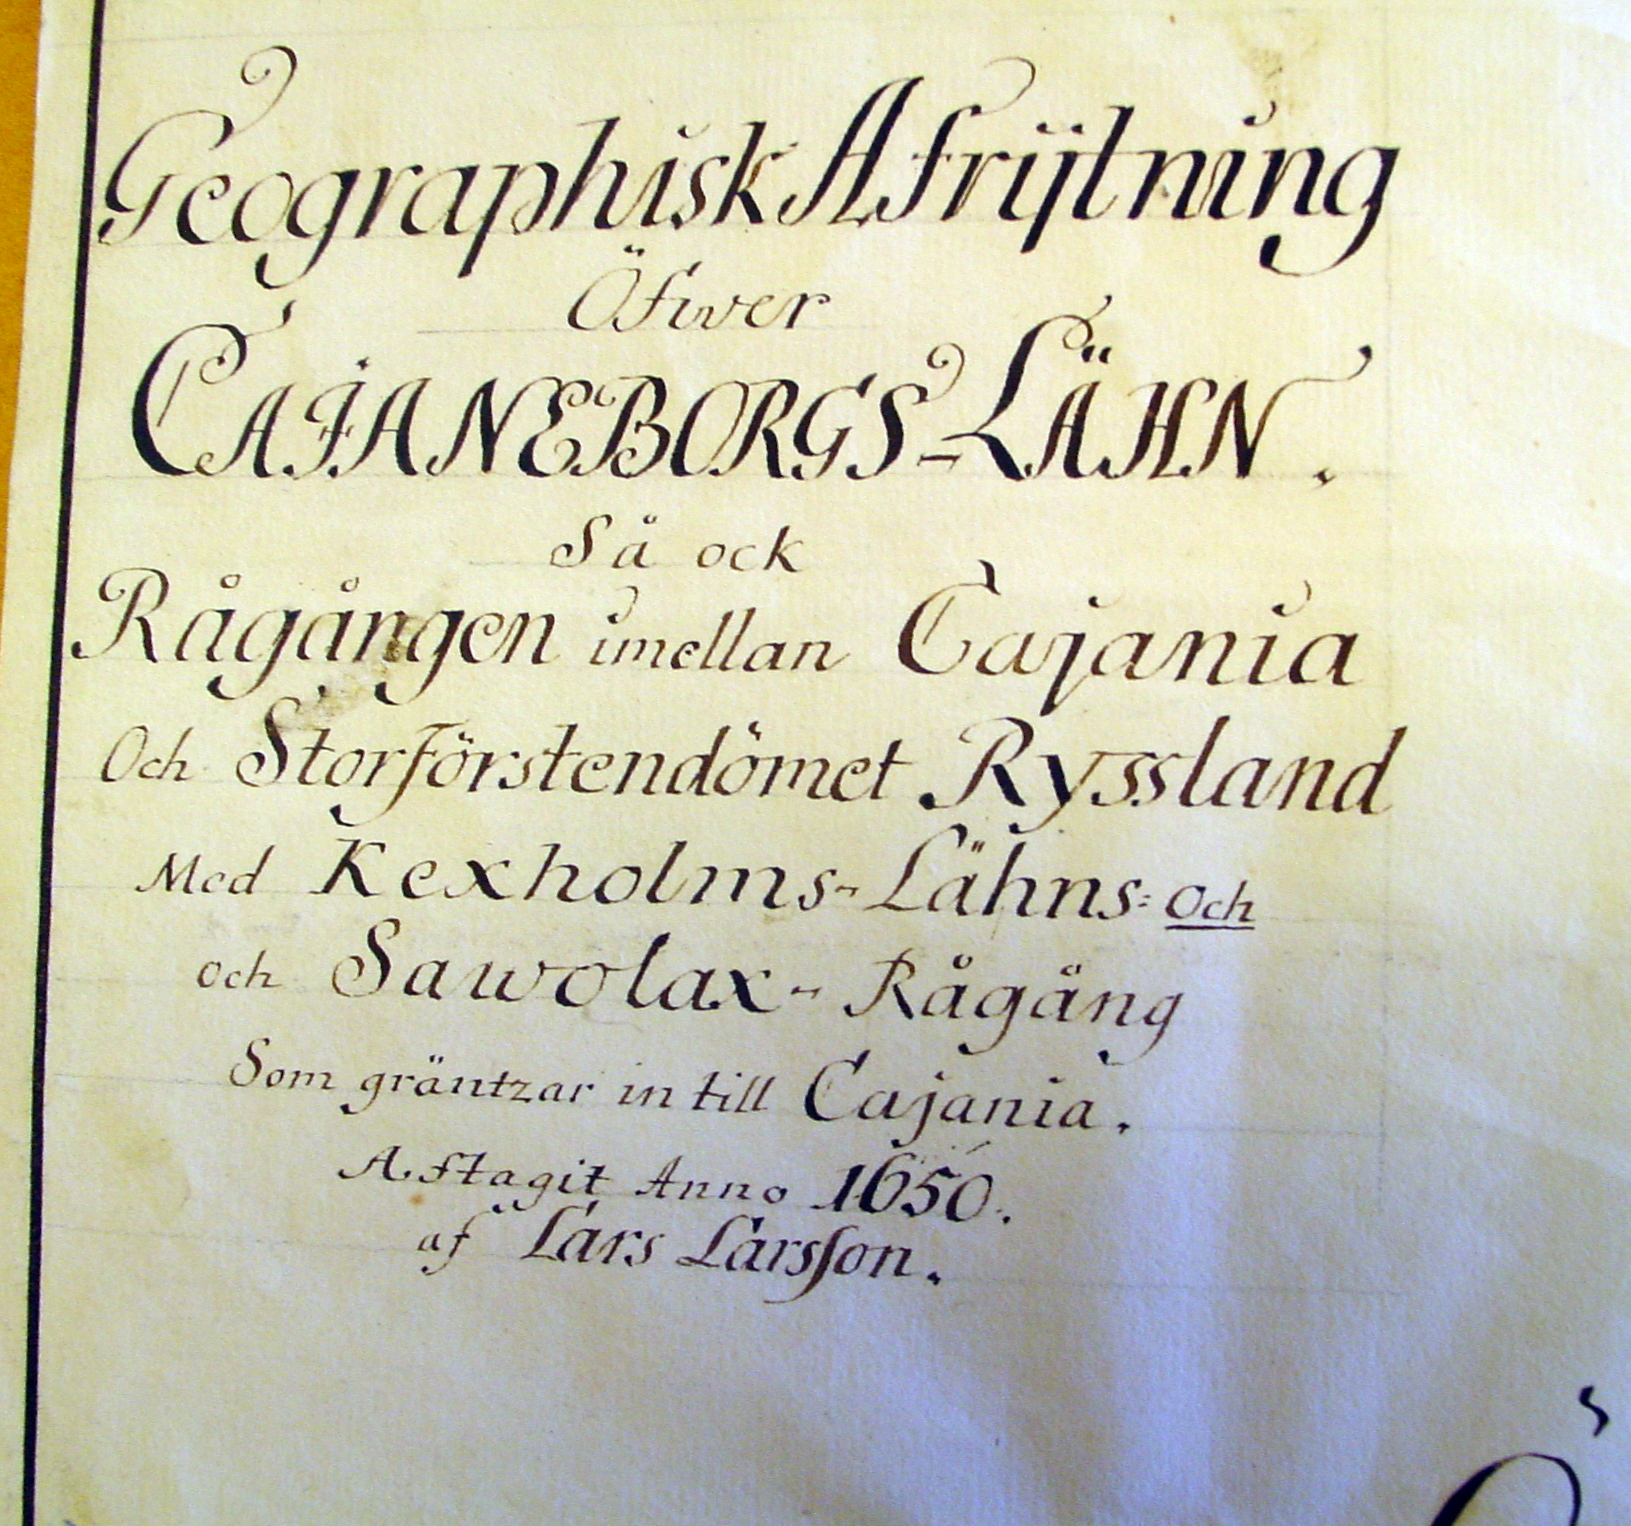 Geographisk Afrijtning
Öfwer
CAJANEBORGS-LÄHN.
Så ock
Rågången imellan Cajania
Och Storförstendömet Ryssland
Med Kexholms-Lähns= och
och Sawolax- Rågång
Som gräntzar in till Cajania.
Aftagit Anno 1650.
af Lars Larsson.